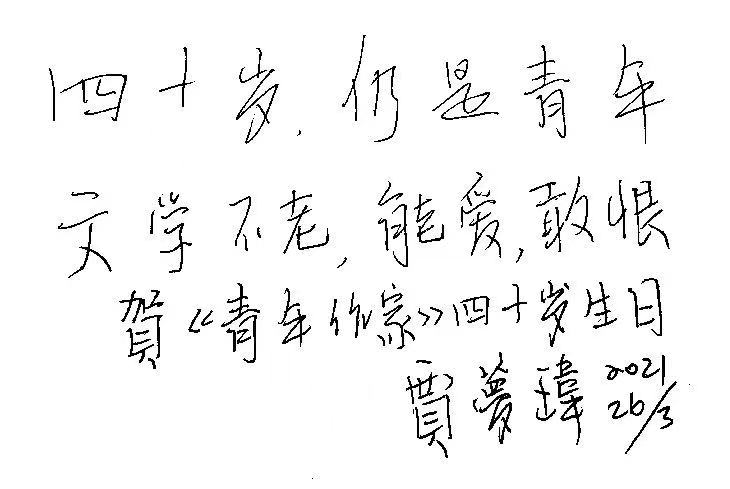 四十岁,仍是青年
文学不老,能爱,敢恨
賀《青年作家》四十岁生日
賈夢瑋 2021
26/3